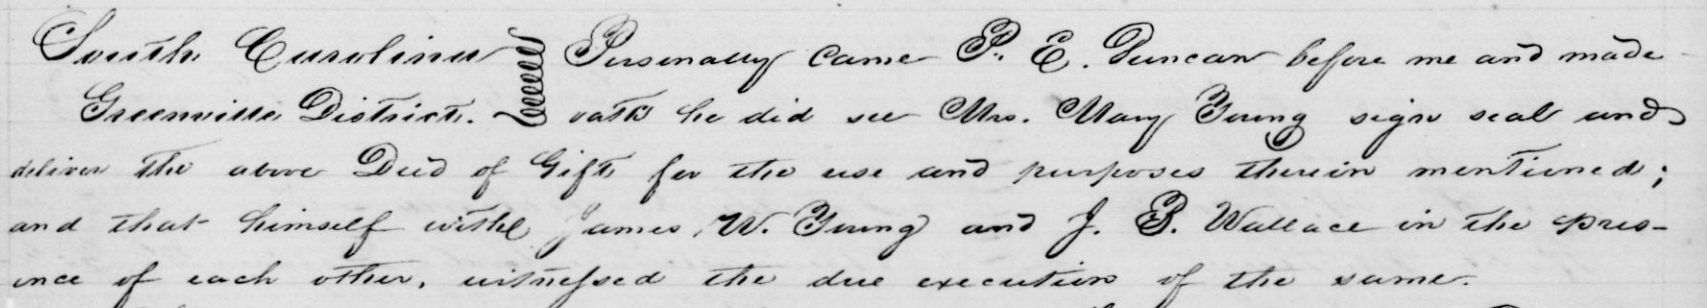 South Carolina Personally came P. E. Duncan before me and made
Greenville District. oath he did see Mrs. Mary Young sign seal and
deliver the above Deed of Gift for the use and purposes therein mentioned;
and that himself with James W. Young and J. P. Wallace in the pres-
ence of each other, witnessed the due execution of the same.